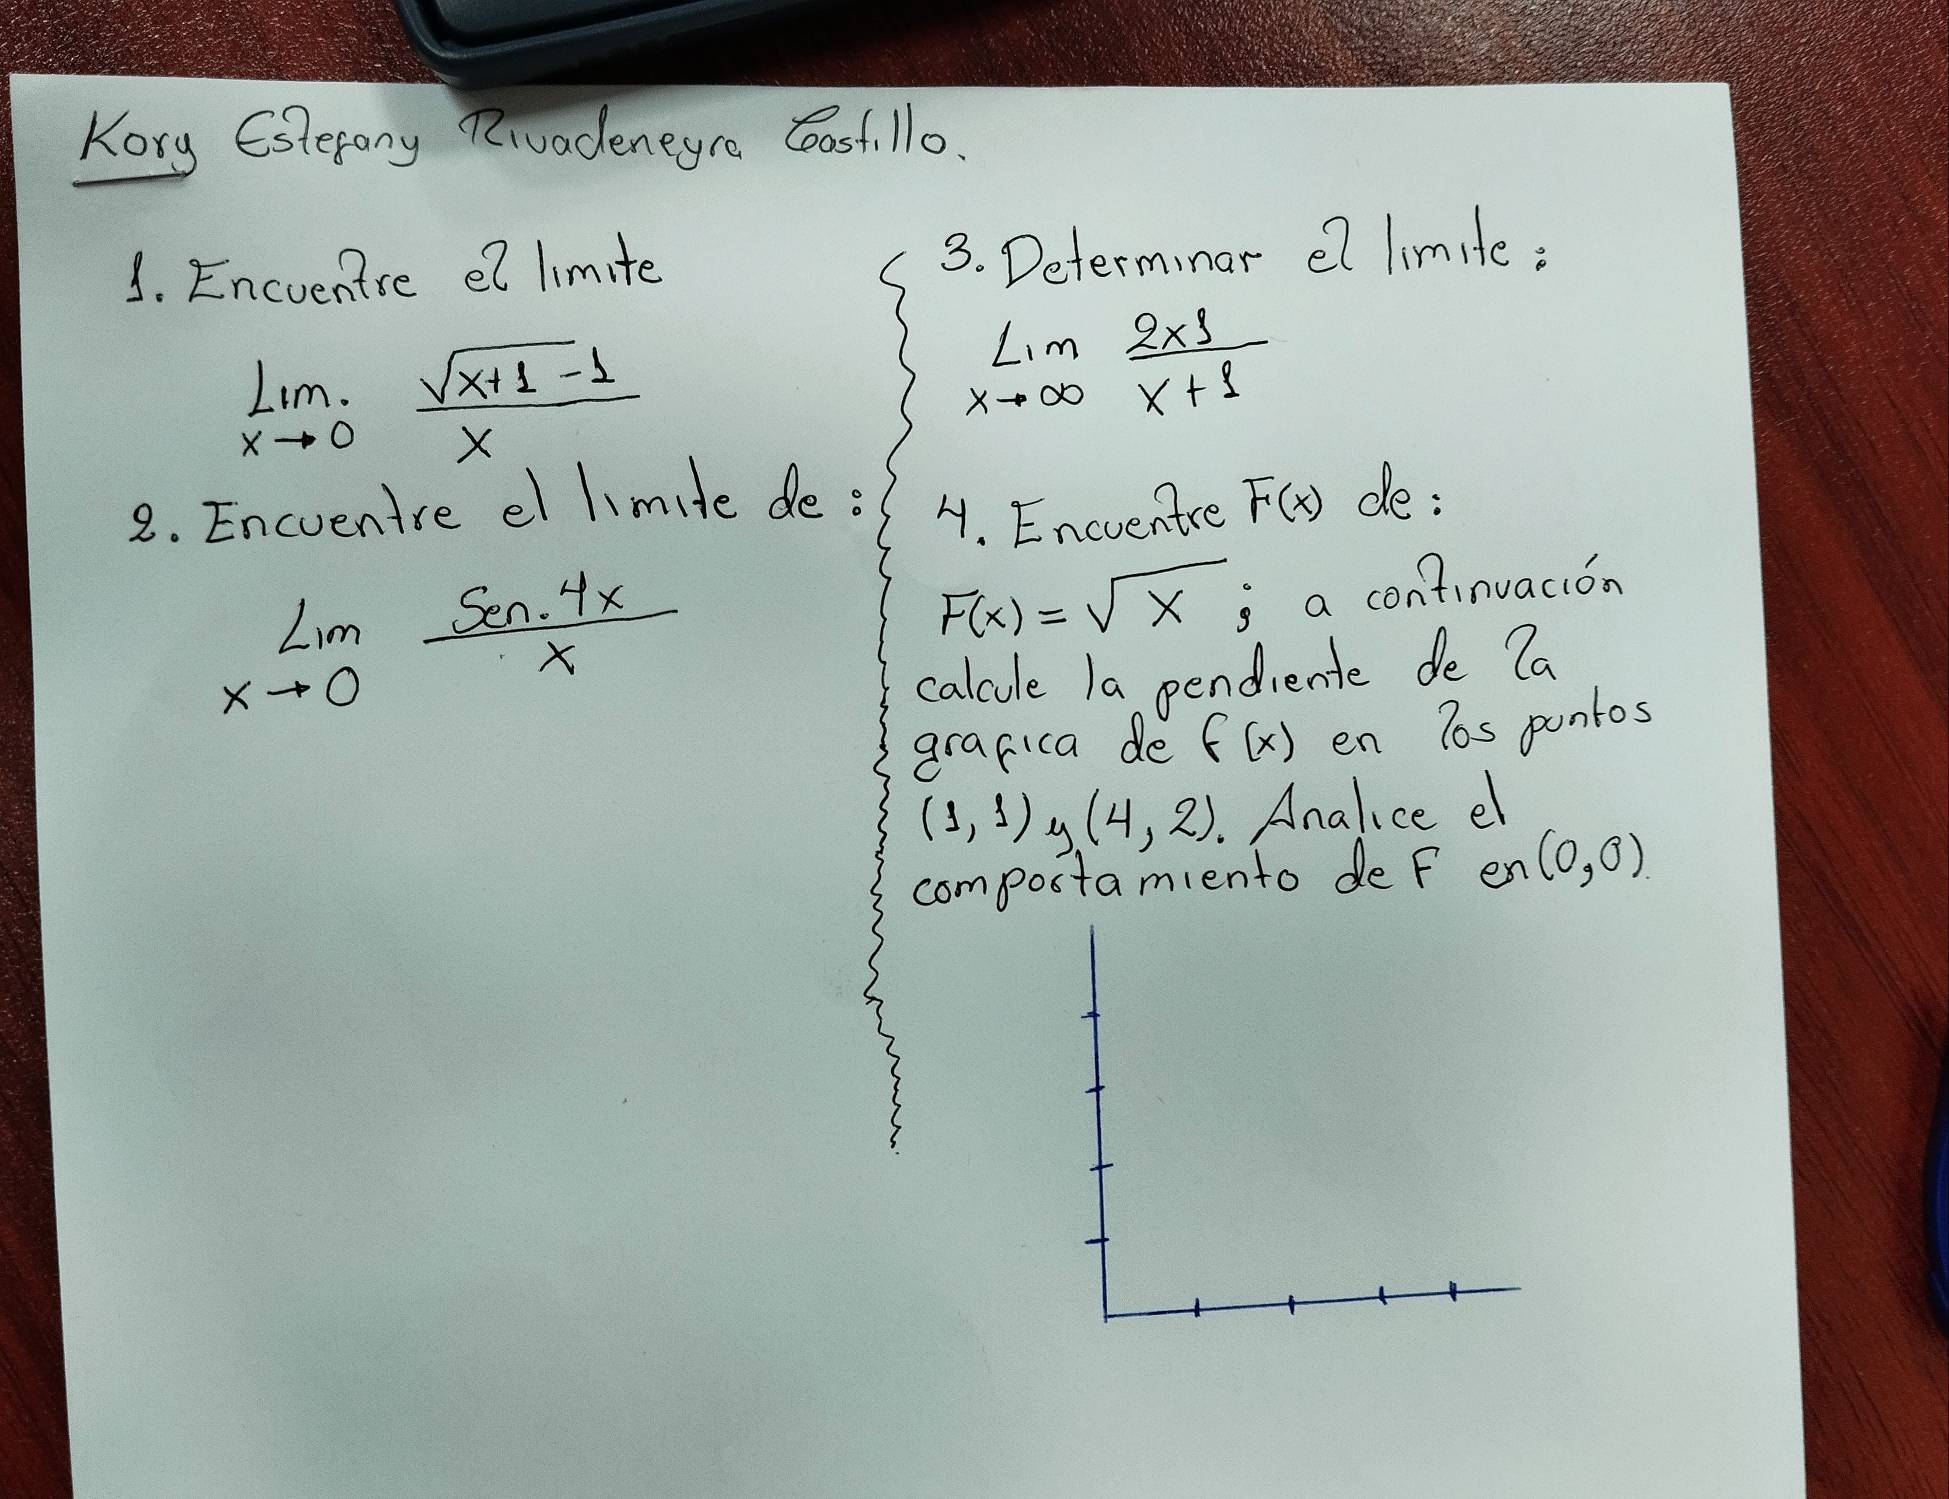 Kory Estefany Rivadeneyra Castillo.
1. Encuentre el limite
Lim. √x+1 -1
x→0 x
2. Encuentre el limite de:
Lim Sen. 4x
x→0 x
3. Determinar el limite:
Lim 2x1
x→∞ x+1
4. Encuentre F(x) de:
F(x) = √x ; a continuación
calcule la pendiente de la
grafica de f(x) en los puntos
(1, 1) y (4, 2). Analice el
comportamiento de F en (0,0).